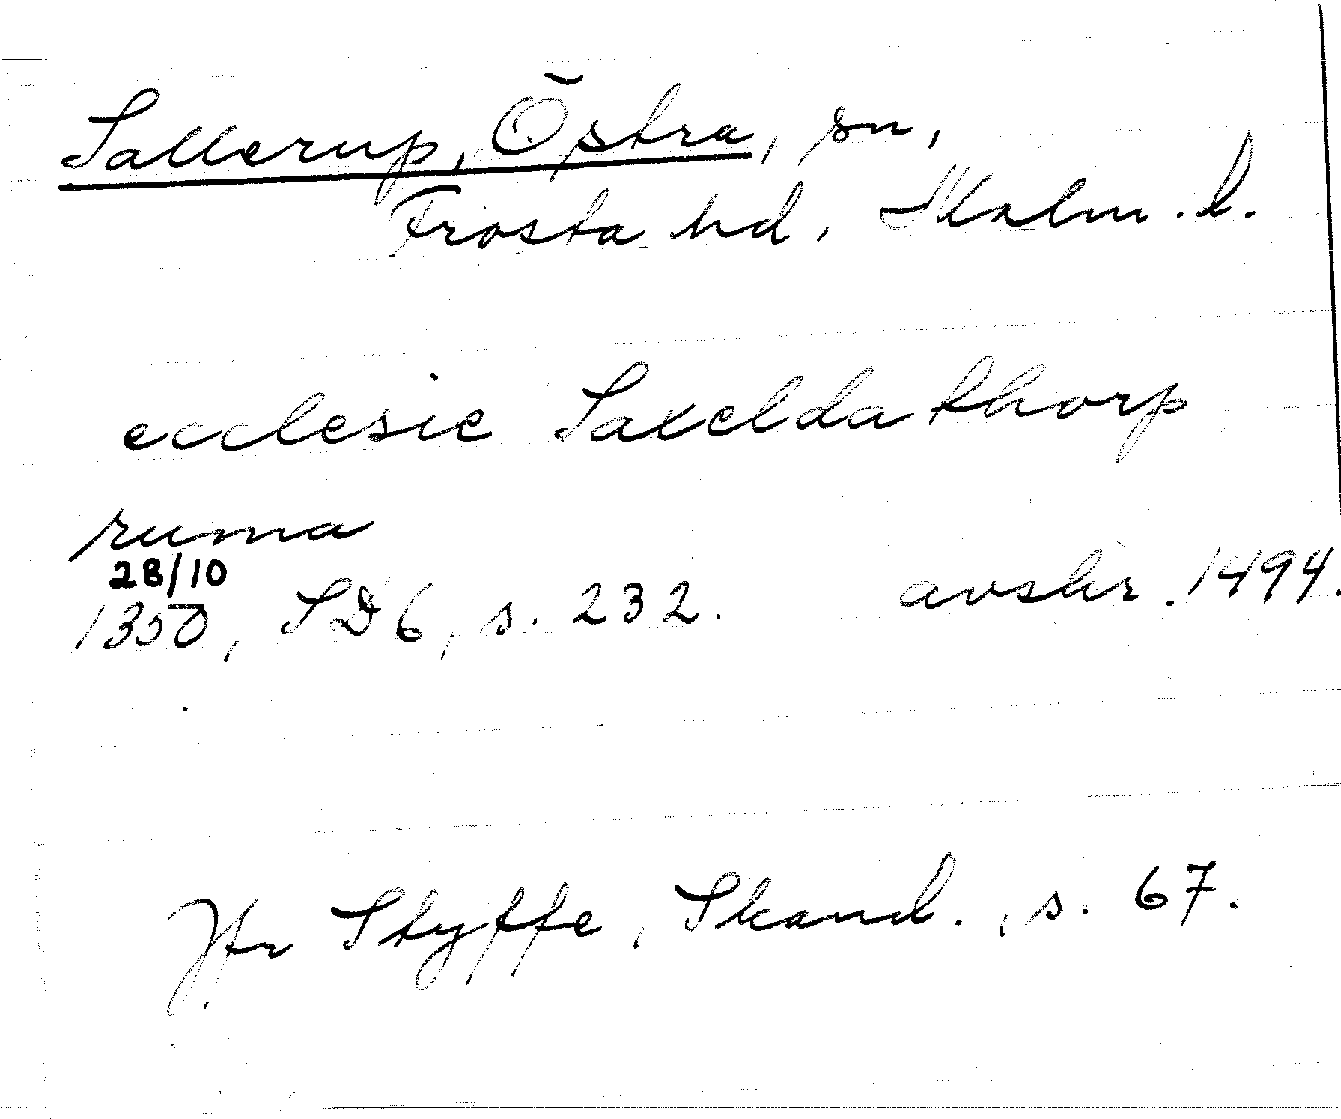 Sallerup, Östra, sn,
Frosta hd, Malm. l.
ecclesie Saxeldathorp
ruma
28/10
1350, SD 6, s. 232. avskr. 1494.
Jfr Styffe, Skand., s. 67.